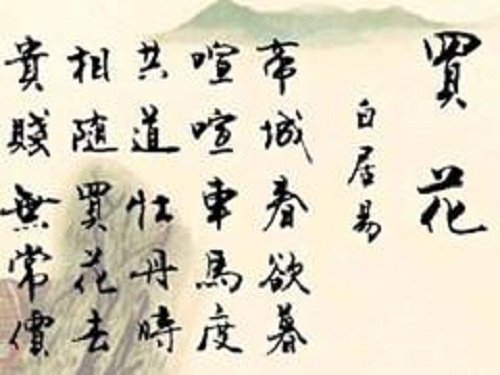 買花
白居易
帝城春欲暮
喧喧車馬度
共道牡丹時
相隨買花去
貴賤無常價